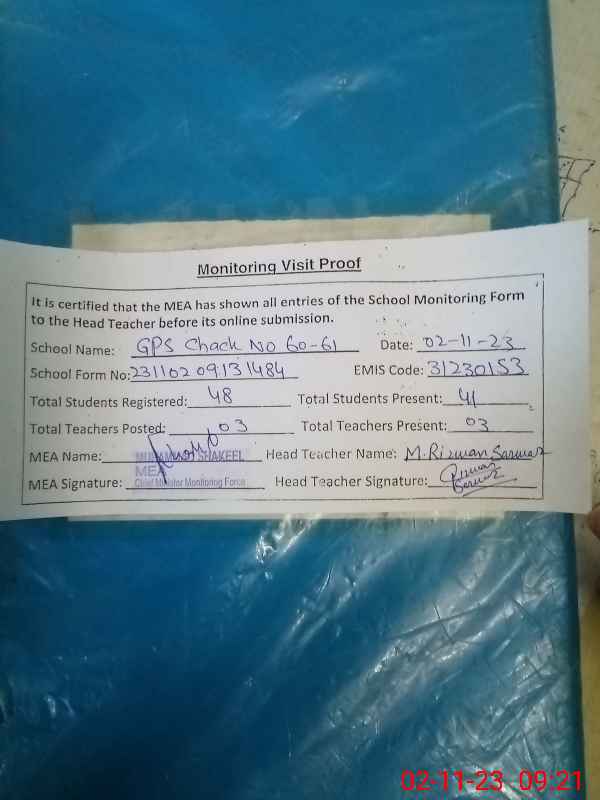 Monitoring Visit Proof
It is certified that the MEA has shown all entries of the School Monitoring Form
to the Head Teacher before its online submission.
School Name: GPS Chack No 60-61 Date: 02-11-23
School Form No: 23110209131484 EMIS Code: 31230153
Total Students Registered: 48 Total Students Present: 41
Total Teachers Posted: 03 Total Teachers Present: 03
MEA Name: MUHAMMAD SHAKEEL Head Teacher Name: M. Rizwan Sarwar
MEA
MEA Signature: Chief Minister Monitoring Force Head Teacher Signature: Rizwan
Sarwar
02-11-23 09:21